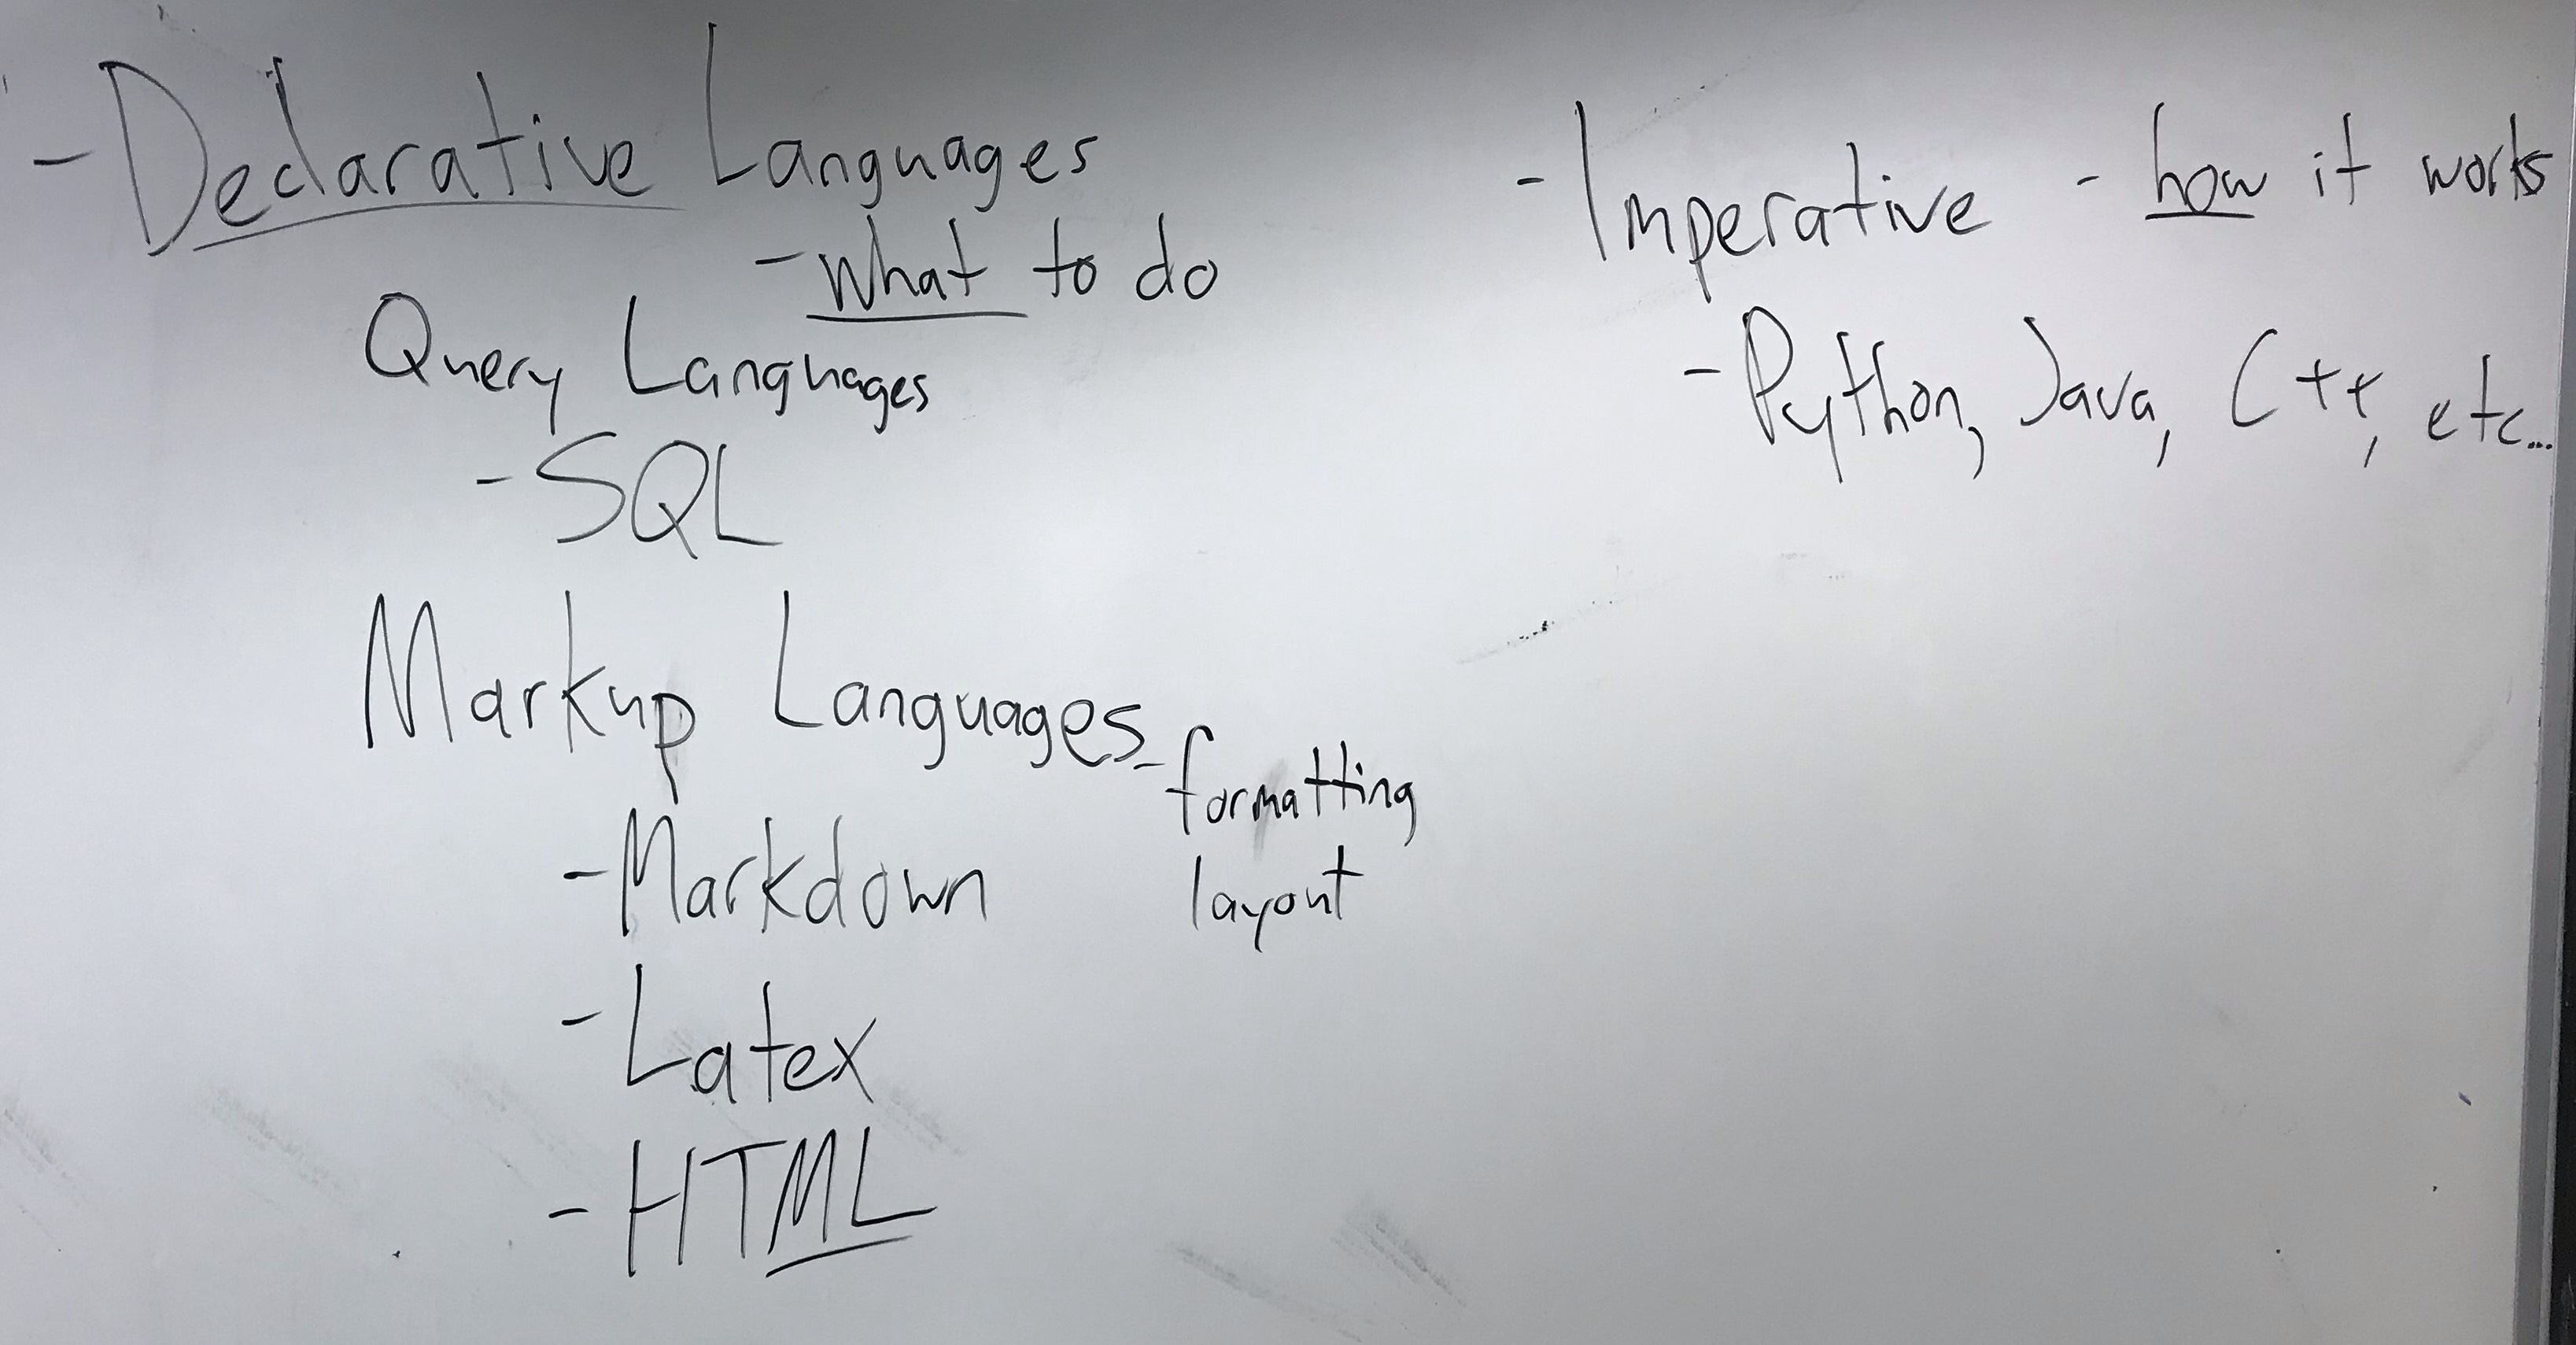 - Declarative Languages
- What to do
Query Languages
- SQL
Markup Languages - formatting
layout
- Markdown
- Latex
- HTML
- Imperative - how it works
- Python, Java, C++, etc...